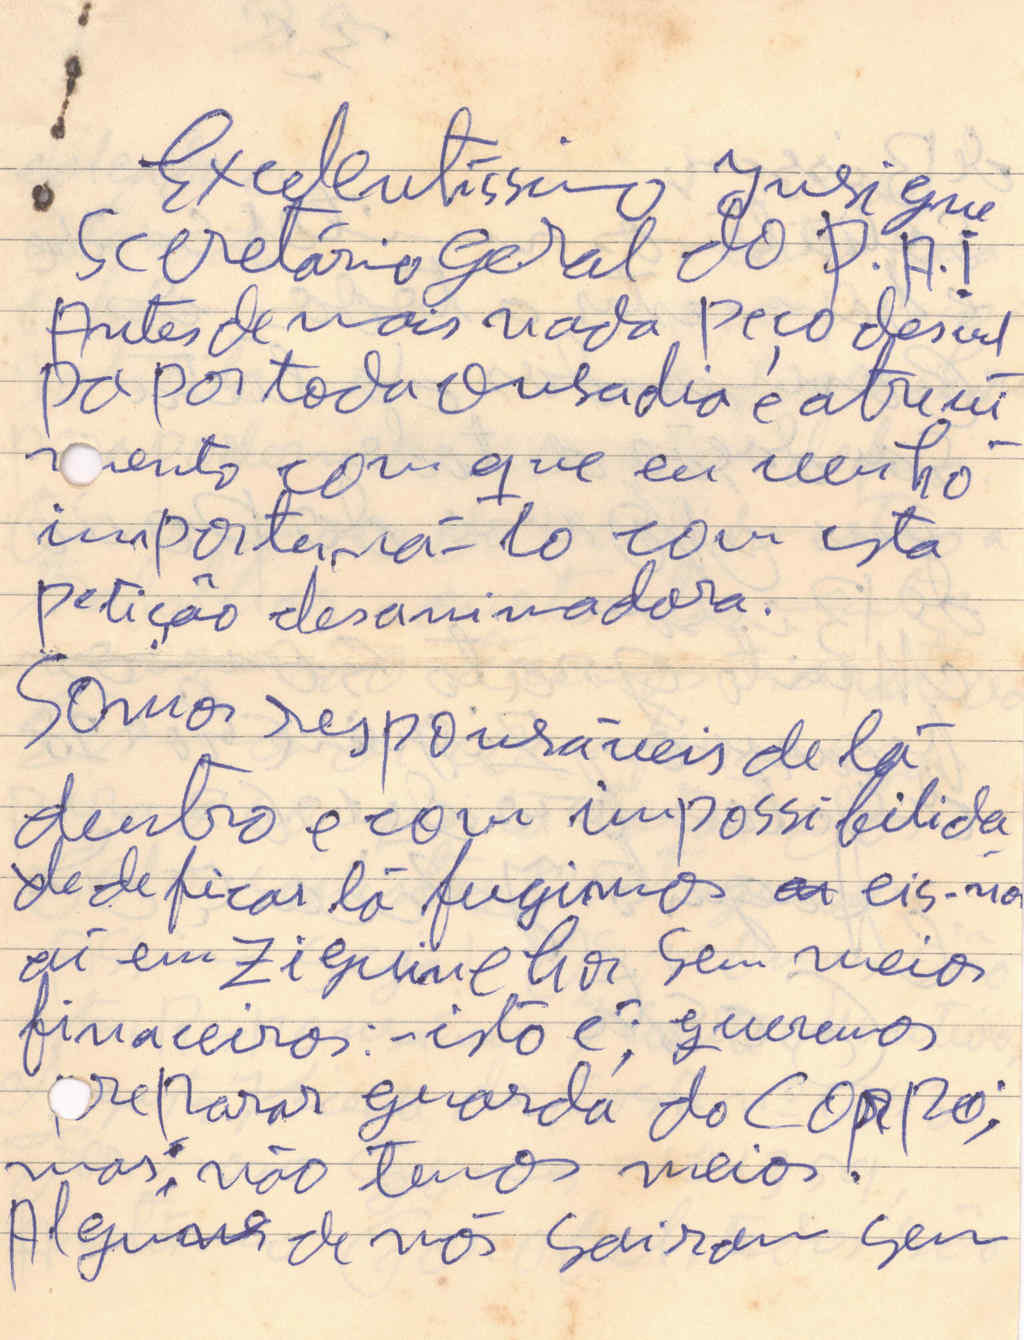 Excelentíssimo Insigne
Secretário Geral do P. A.!
Antes de mais nada peço descul
pa por toda ousadia e atrevi
mento com que eu venho
importuná-lo com esta
petição desanimadora.
Somos responsáveis de lá
dentro e com impossibilida
de de ficar lá fugimos eis-nos
aí em Ziguinchor sem meios
finaceiros: - isto é; queremos
preparar guarda do Corpo;
mas; não temos meios.
Alguns de nós sairam sem